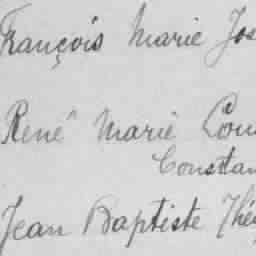 François Marie Jos
René Marie Cou
Constan
Jean Baptiste Thé